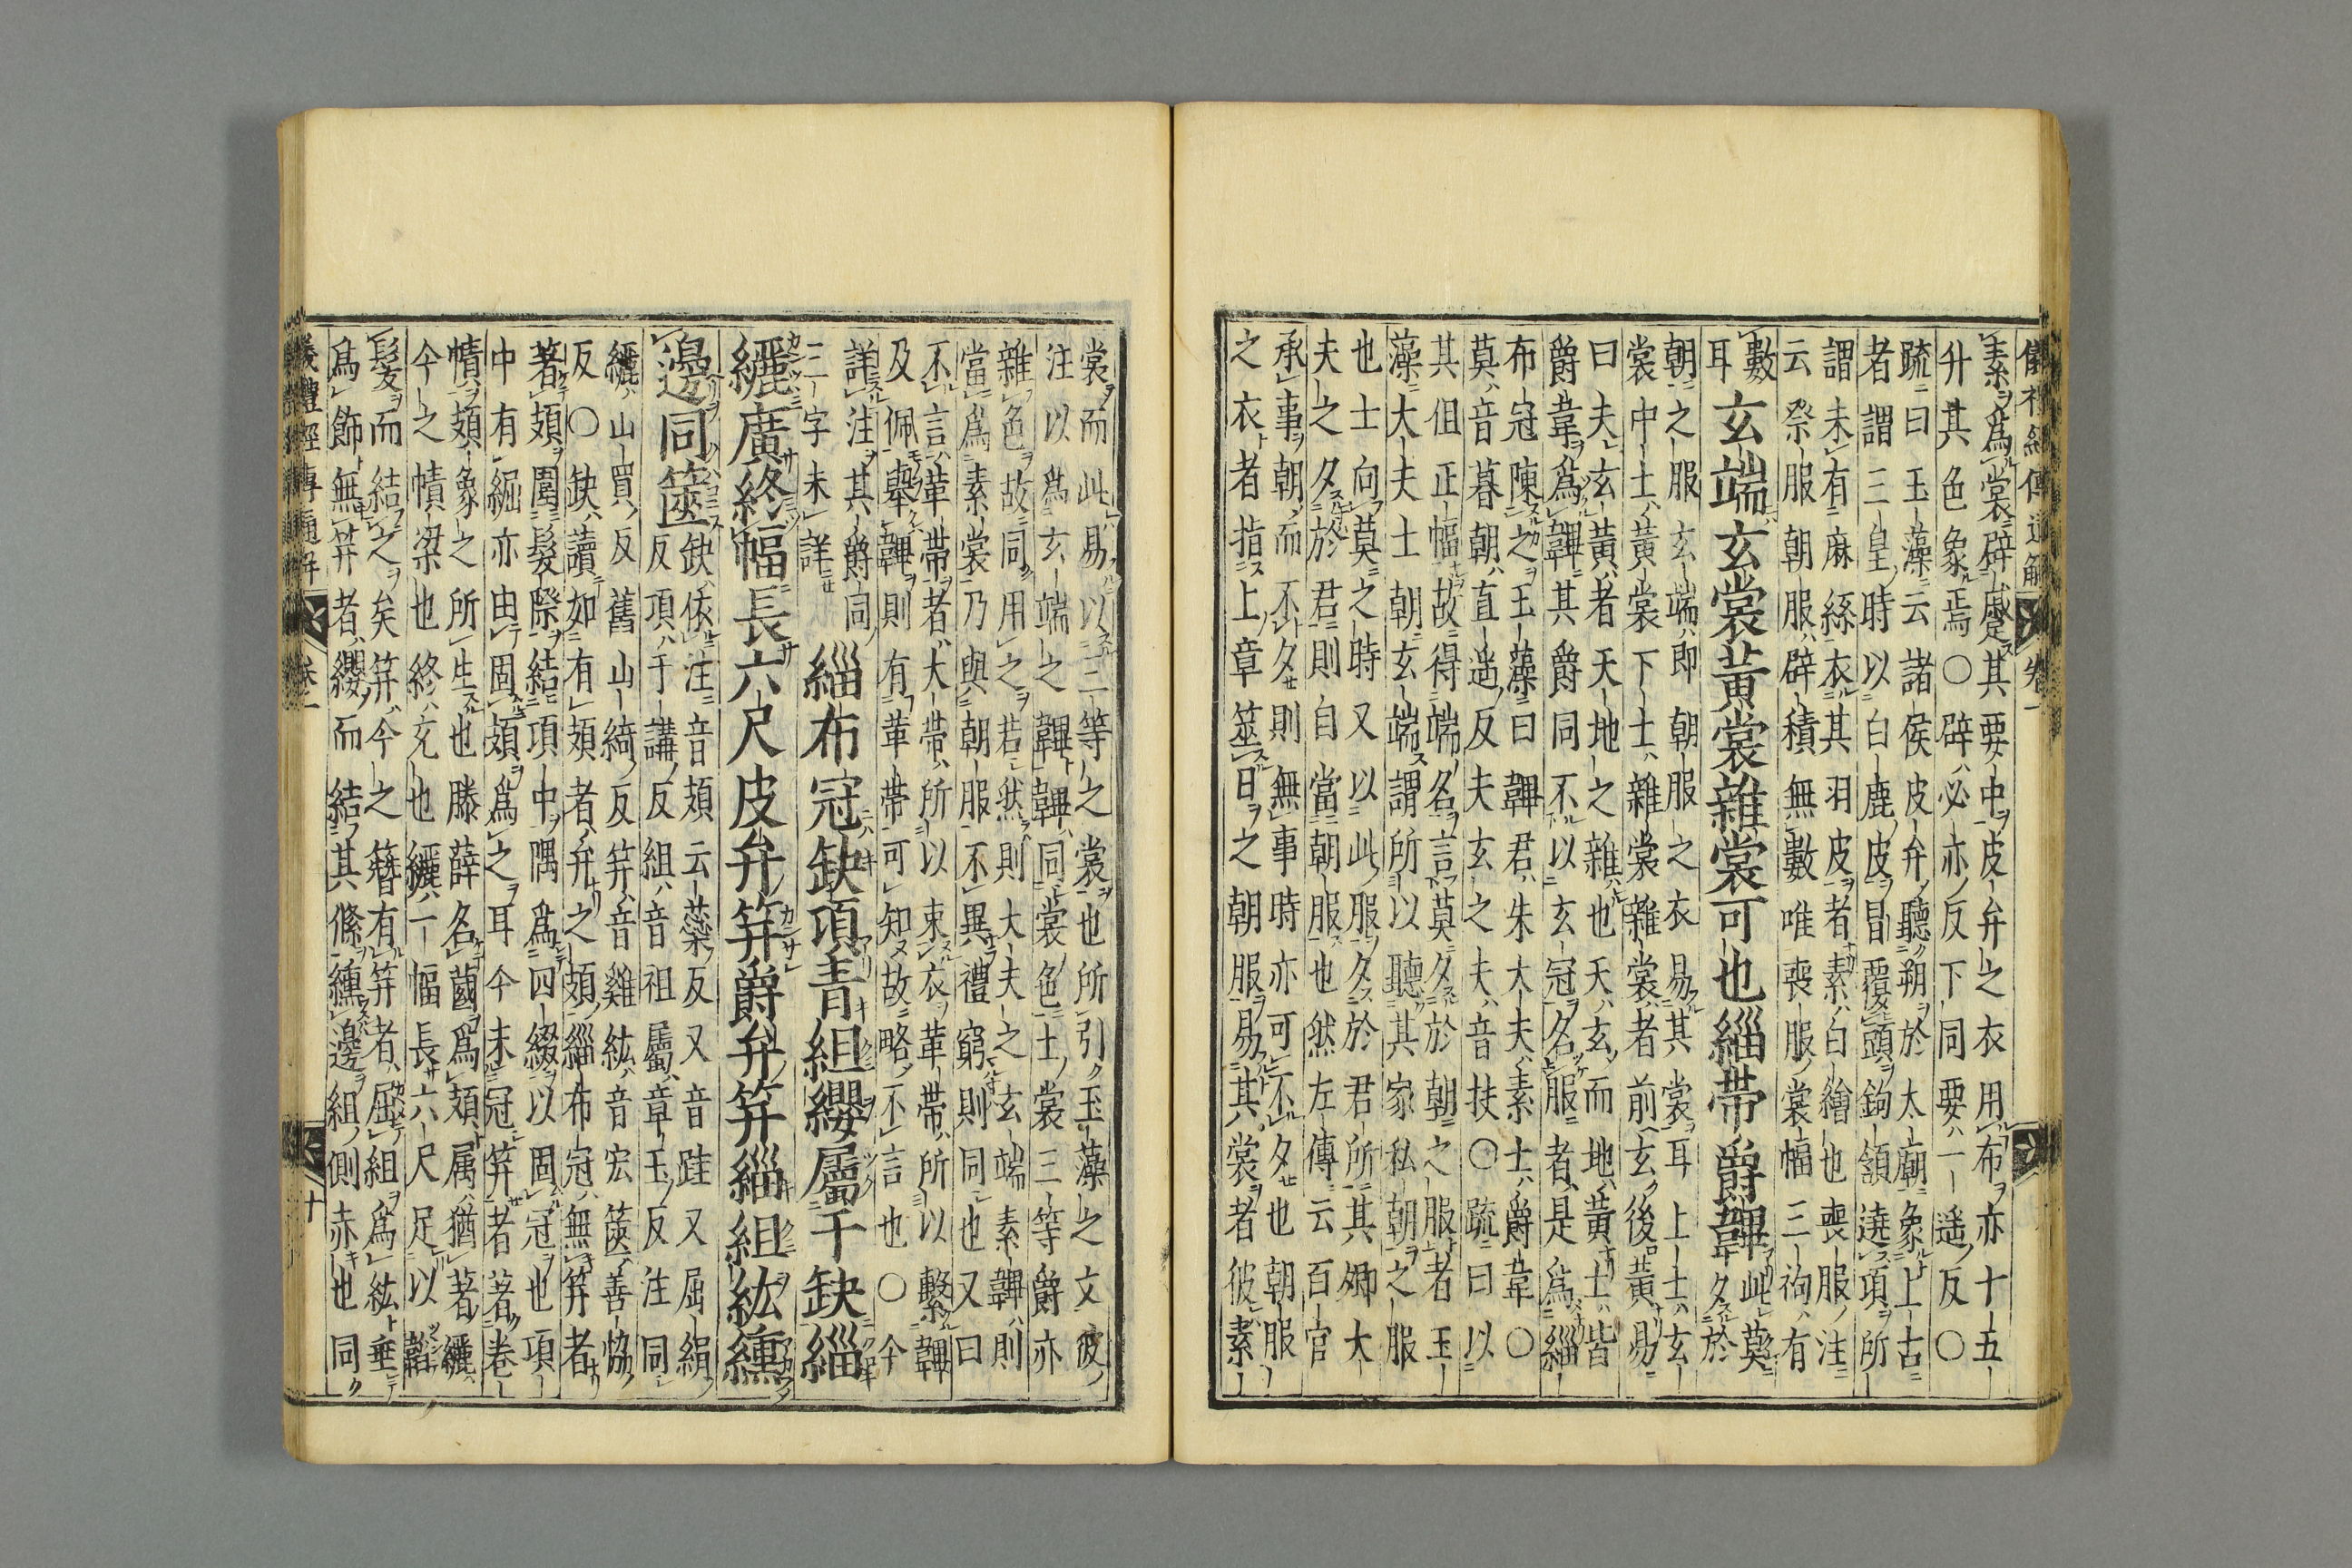 儀禮經傳通解 卷一
素爲裳辟蹙其要中皮弁之衣用布亦十五
升其色象焉〇辟必亦反下同要一遥反〇
疏曰玉藻云諸侯皮弁聽朔於太廟象上古
者謂三皇時以白鹿皮冒覆頭鉤頷遶項所
謂未有麻絲衣其羽皮者素白繒也喪服注
云祭服朝服辟積無數唯喪服裳幅三袧有
數耳玄端玄裳黃裳雜裳可也緇帶爵韠此莫夕於
朝之服玄端即朝服之衣易其裳耳上士玄
裳中士黃裳下士雜裳雜裳者前玄後黃易
曰夫玄黃者天地之雜也天玄而地黃士皆
爵韋爲韠其爵同不以玄冠名服者是爲緇
布冠陳之玉藻曰韠君朱大夫素士爵韋〇
莫音暮朝直遥反夫玄之夫音扶〇疏曰以
其但正幅故得端名言莫夕於朝之服者玉
藻大夫士朝玄端謂所以聽其家私朝之服
也士向莫之時又以此服夕於君所其卿大
夫之夕於君則自當朝服也然左傳云百官
承事朝而不夕則無事時亦可不夕也朝服
之衣者指上章筮日之朝服易其裳者彼素
裳而此易以三等之裳也所引玉藻之文彼
注以爲玄端之韠韠同裳色士裳三等爵亦
雜色故同用之若然則大夫之玄端素韠則
當爲素裳乃與朝服不異禮窮則同也又曰
不言革帶者大帶所以束衣革帶所以繫韠
及佩舉韠則有革帶可知故略不言也〇今
詳注其爵同
三字未詳緇布冠缺項青組纓屬于缺緇
纚廣終幅長六尺皮弁笄爵弁笄緇組紘纁
邊同篋缺依注音頍云蘂反又音跬又屈絹
反項于講反組音祖屬章玉反注同
纚山買反舊山綺反笄音雞紘音宏篋善協
反〇缺讀如有頍者弁之頍緇布冠無笄者
著頍圍髮際結項中隅爲四綴以固冠也項
中有䋿亦由固頍爲之耳今未冠笄者著卷
幘頍象之所生也滕薛名蔮爲頍属猶著纚
今之幘梁也終充也纚一幅長六尺足以韜
髮而結之矣笄今之簪有笄者屈組爲紘垂
爲飾無笄者纓而結其絛纁邊組側赤也同
儀禮經傳通解 卷一 十